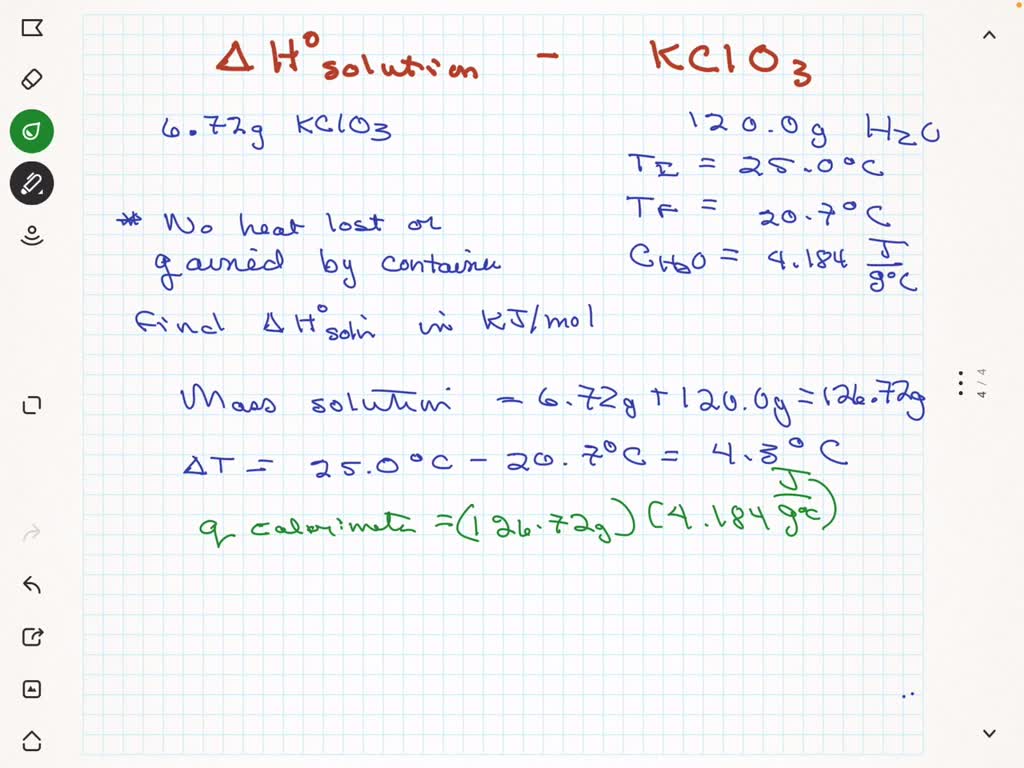 ΔH°solution - KClO3
6.72g KClO3
120.0g H2O
TI = 25.0°C
TF = 20.7°C
CH2O = 4.184 J/g°C
* No heat lost or
gained by container
Find ΔH°soln in KJ/mol
Mass solution = 6.72g + 120.0g = 126.72g
ΔT = 25.0°C - 20.7°C = 4.3°C
q calorimeter = (126.72g) (4.184 J/g°C)
4 / 4